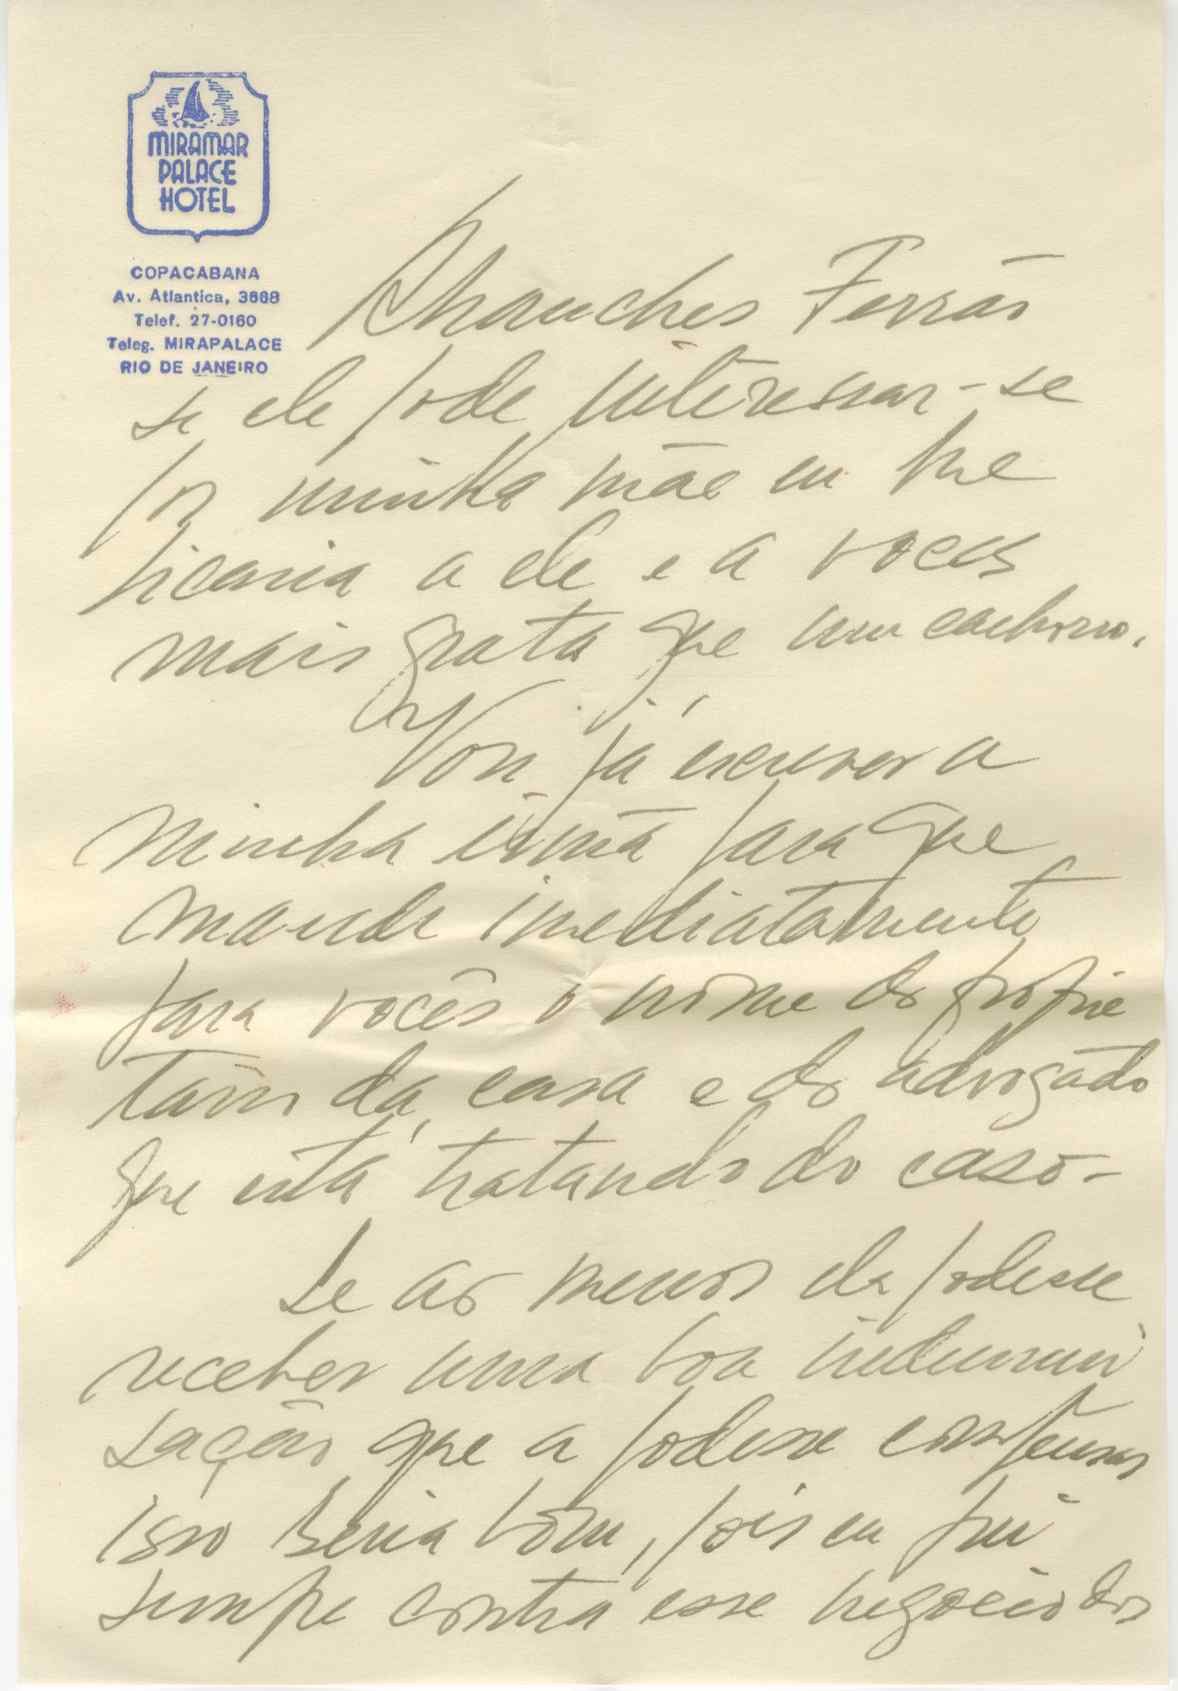 MIRAMAR
PALACE
HOTEL
COPACABANA
Av. Atlantica, 3668
Telef. 27-0160
Teleg. MIRAPALACE
RIO DE JANEIRO
Ferrás
se ele pode interessar-se
por minha mãe eu me
ficaria a ele e a voces
mais grata que um cachorro.
Vou já escrever a
minha irmã para que
mande imediatamente
para vocês o nome do proprie
tario da casa e do advogado
que está tratando do caso-
Se ao menos ela podesse
receber uma boa indemni
sação que a podesse compensar
isso seria bom, pois eu fui
sempre contra esse negocio dos